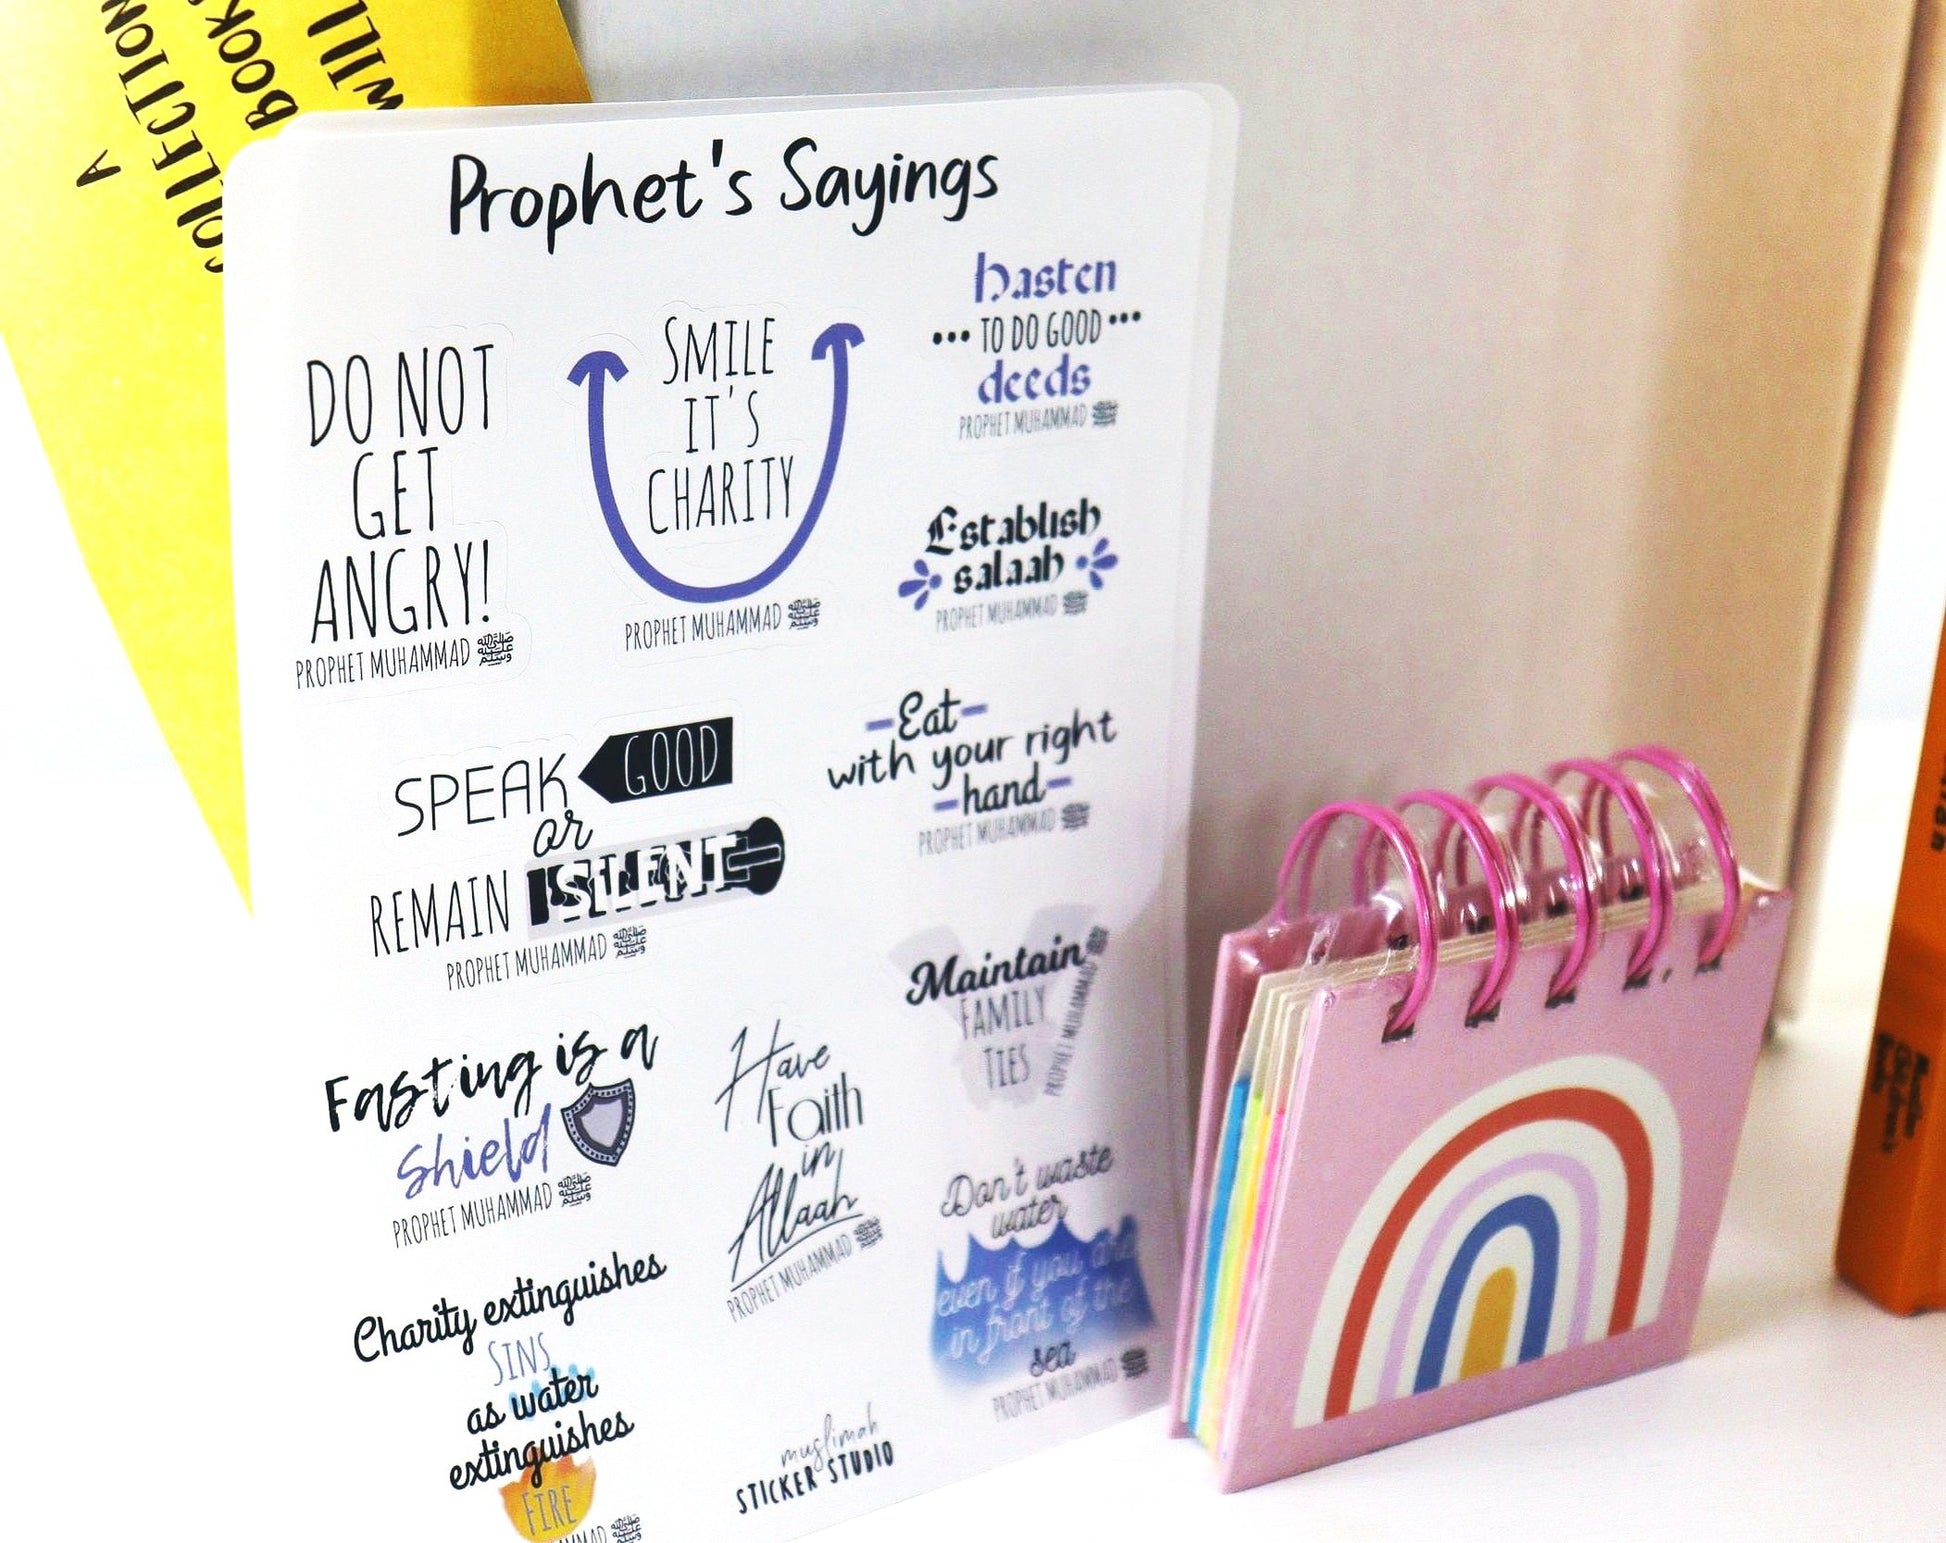 A
COLLECTION
BOOKS
WILL
Prophet's Sayings
DO NOT
GET
ANGRY!
PROPHET MUHAMMAD ﷺ
SMILE
IT'S
CHARITY
PROPHET MUHAMMAD ﷺ
hasten
••• TO DO GOOD •••
deeds
PROPHET MUHAMMAD ﷺ
Establish
salaah
PROPHET MUHAMMAD ﷺ
SPEAK GOOD
or
REMAIN SILENT
PROPHET MUHAMMAD ﷺ
-Eat-
with your right
-hand-
PROPHET MUHAMMAD ﷺ
Maintain
FAMILY
TIES
PROPHET MUHAMMAD ﷺ
Fasting is a
Shield
PROPHET MUHAMMAD ﷺ
Have
Faith
in
Allaah
PROPHET MUHAMMAD ﷺ
Don't waste
water
even if you are
in front of the
sea
PROPHET MUHAMMAD ﷺ
Charity extinguishes
SINS
as water
extinguishes
FIRE
ﷺ
muslimah
STICKER STUDIO